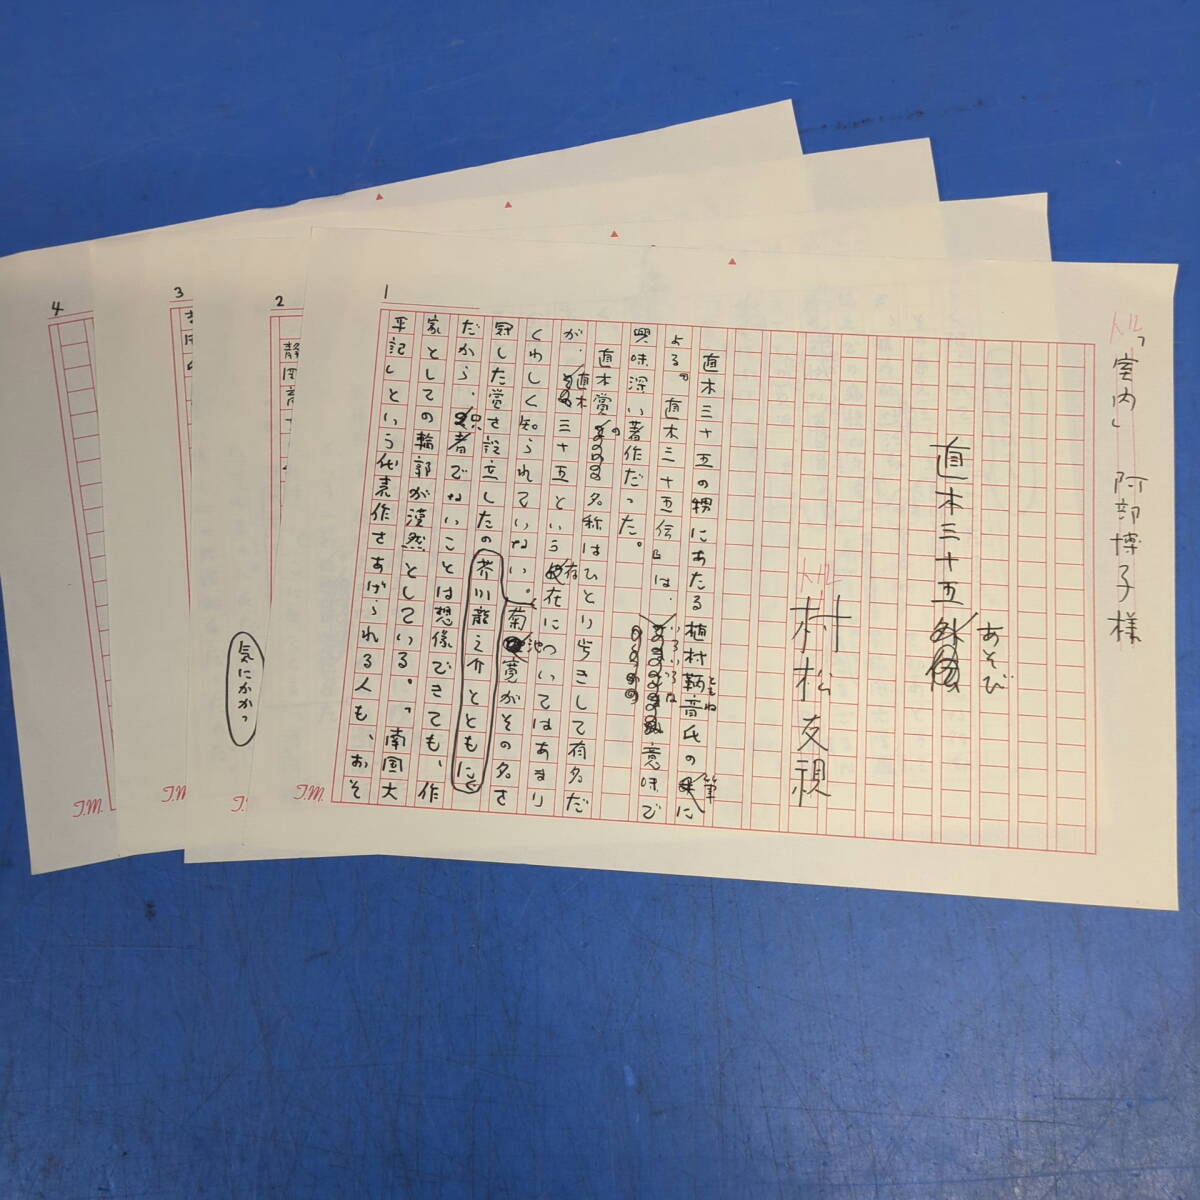 「室内」 阿部博子様
トル
直木三十五
あそび
トル
村松友視
直木三十五の甥にあたる植村鞆音氏の筆に
ともね
よる『直木三十五伝』は、いろいろな意味で
興味深い著作だった。
直木賞の名称はひとり歩きして有名だ
が、直木三十五という存在についてはあまり
くわしく知られていない。菊池寛がその名を
冠した賞を設立したの芥川龍之介とともに
だから、只者でないことは想像できても、作
家としての輪郭が漠然としている。『南国太
平記』という代表作をあげられる人も、おそ
1
2
3
4
気にかかっ
T.M.
T.M.
T.M.